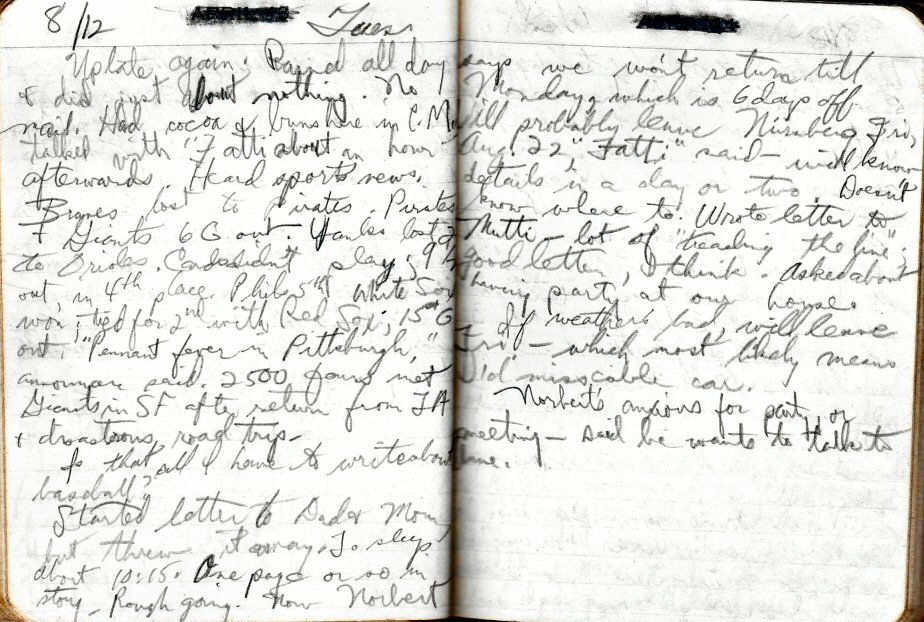 8/12 Tues.
Up late again. Rained all day
& did just about nothing. No
mail. Had cocoa & buns here in C.M.
talked with "Fatti" about an hour
afterwards. Heard sports news.
Braves lost to Pirates. Pirates
7 Giants 6 G out - Yanks lost
to Orioles. Cards didn't play; 9 ½
out, in 4th place. Phils 5th. White Sox
won, tied for 2nd with Red Sox; 15 G
out. "Pennant fever in Pittsburgh,"
announcer said. 2500 fans met
Giants in SF after return from LA
& disastrous road trip -
Is that all I have to write about
baseball?
Started letter to Dad & Mom
but threw it away. To sleep
about 10:15. One page or so in
story - Rough going. Now Norbert
says we won't return till
Monday, which is 6 days off
Will probably leave Nürnberg Fri,
Aug. 22, "Fatti" said - will know
details in a day or two. Doesn't
know where to. Wrote letter to
Mutti - lot of "treading the line",
good letter, I think. Asked about
having party at our house.
If weather's bad, will leave
Fri - which most likely means
old miserable car.
Norbert's anxious for party or
meeting - said he wants to talk to
me.